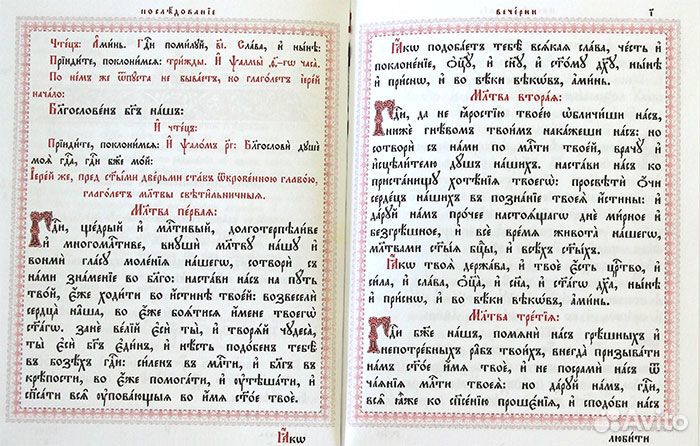 послѣ́дованїе
Чте́цъ: А҆ми́нь. Гдⷭ҇и поми́лꙋй, в҃і. Сла́ва, и҆ ны́нѣ:
Прїиди́те, поклони́мсѧ: три́жды. И҆ ѱалмы̀ ѳ҃-гѡ часа̀.
По ни́хъ же ѿпꙋ́ста не быва́етъ, но глаго́летъ і҆ере́й
нача́ло:
Бл҃гослове́нъ бг҃ъ на́шъ:
И҆ чте́цъ:
Прїиди́те, поклони́мсѧ: И҆ ѱало́мъ р҃г: Благословѝ дꙋшѐ
моѧ̀ гдⷭ҇а, гдⷭ҇и бж҃е мо́й:
І҆ере́й же, пред̾ ст҃ы́ми две́рьми ста́въ ѿкрове́нною главо́ю,
глаго́летъ мл҃твы свѣти́льничныѧ.
Мл҃тва пе́рваѧ:
Гдⷭ҇и, ще́дрый и҆ млⷭ҇тивый, долготерпѣли́ве
и҆ многомлⷭ҇тиве, внꙋшѝ мл҃твꙋ на́шꙋ и҆
вонмѝ гла́сꙋ моле́нїѧ на́шегѡ, сотворѝ съ
на́ми зна́менїе во бл҃го: наста́ви на́съ на пꙋ́ть
тво́й, є҆́же ходи́ти во и҆́стинѣ твое́й: возвеселѝ
сердца̀ на̑ша, во є҆́же боѧ́тисѧ и҆́мене твоегѡ̀
ст҃а́гѡ. занѐ ве́лїй є҆сѝ ты̀, и҆ творѧ́й чꙋдеса̀,
ты̀ є҆сѝ бг҃ъ є҆ди́нъ, и҆ нѣ́сть подо́бенъ тебѣ̀
въ бозѣ́хъ гдⷭ҇и: си́ленъ въ млⷭ҇ти, и҆ бл҃гъ въ
крѣ́пости, во є҆́же помога́ти, и҆ ᲂу҆тѣша́ти, и҆
сп҃са́ти всѧ̑ ᲂу҆пова́ющыѧ во и҆́мѧ ст҃о́е твоѐ.
Ꙗ҆́кѡ
вече́рни
і҃
Ꙗ҆́кѡ подоба́етъ тебѣ̀ всѧ́каѧ сла́ва, че́сть и҆
поклоне́нїе, ѻ҆ц҃ꙋ̀, и҆ сн҃ꙋ, и҆ ст҃о́мꙋ дх҃ꙋ, ны́нѣ
и҆ при́снѡ, и҆ во вѣ́ки вѣкѡ́въ, а҆ми́нь.
Мл҃тва втора́ѧ:
Гдⷭ҇и, да не ꙗ҆́ростїю твое́ю ѡ҆бличи́ши на́съ,
нижѐ гнѣ́вомъ твои́мъ нака́жеши на́съ: но
сотворѝ съ на́ми по млⷭ҇ти твое́й, врачꙋ̀ и҆
и҆сцѣли́телю дꙋ́шъ на́шихъ. наста́ви на́съ ко
приста́нищꙋ хотѣ́нїѧ твоегѡ̀: просвѣтѝ ѻ҆́чи
серде́цъ на́шихъ въ позна́нїе твоеѧ̀ и҆́стины: и҆
да́рꙋй на́мъ про́чее настоѧ́щагѡ днѐ ми́рное и҆
безгрѣ́шное, и҆ всѐ вре́мѧ живота̀ на́шегѡ,
мл҃твами ст҃ы́ѧ бцⷣы, и҆ всѣ́хъ ст҃ы́хъ.
Ꙗ҆́кѡ твоѧ̀ держа́ва, и҆ твоѐ є҆́сть црⷭ҇тво, и҆
си́ла, и҆ сла́ва, ѻ҆ц҃а̀, и҆ сн҃а, и҆ ст҃а́гѡ дх҃а, ны́нѣ
и҆ при́снѡ, и҆ во вѣ́ки вѣкѡ́въ, а҆ми́нь.
Мл҃тва тре́тїѧ:
Гдⷭ҇и бж҃е на́шъ, помѧнѝ на́съ грѣ́шныхъ и҆
непотре́бныхъ ра̑бъ твои́хъ, внегда̀ призыва́ти
на́мъ ст҃о́е и҆́мѧ твоѐ, и҆ не посрамѝ на́съ ѿ
ча́ѧнїѧ млⷭ҇ти твоеѧ̀: но да́рꙋй на́мъ, гдⷭ҇и,
всѧ̑ ꙗ҆̀же ко сп҃се́нїю прошє́нїѧ, и҆ сподо́би на́съ
люби́ти
Avito